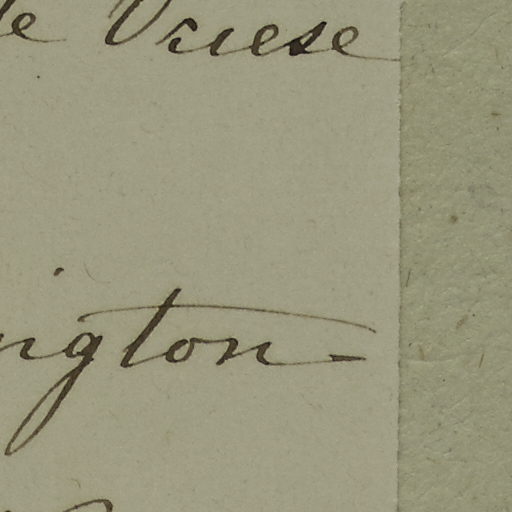 le Vriese
ngton